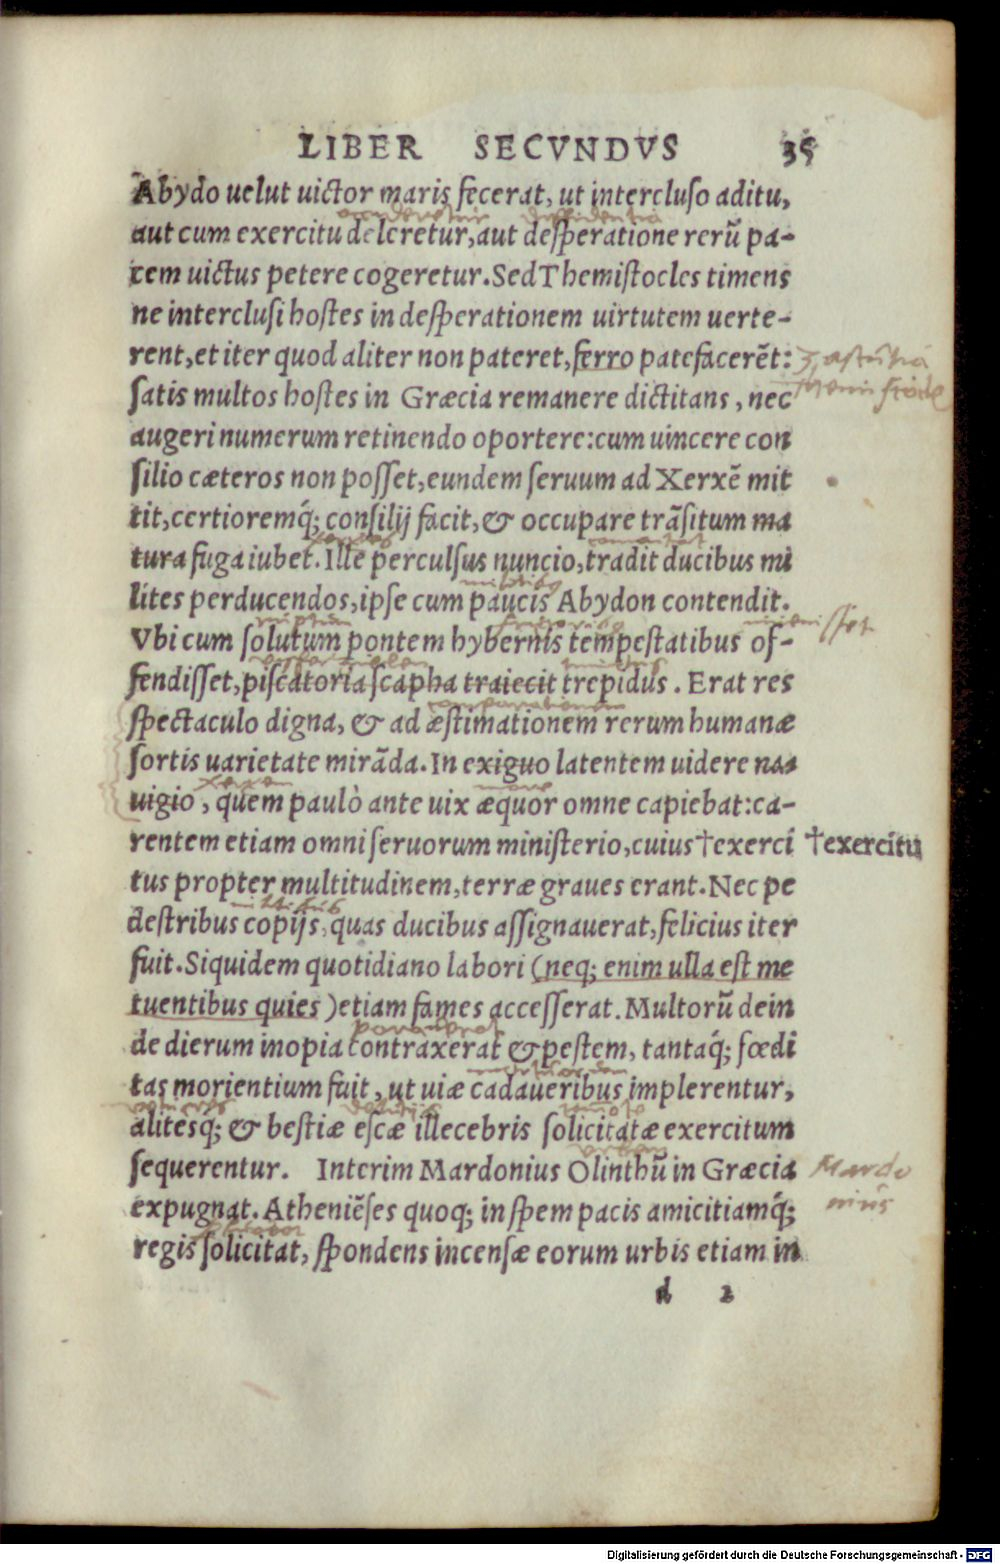 LIBER SECVNDVS 35
Abydo uelut uictor maris fecerat, ut intercluso aditu,
aut cum exercitu deleretur, aut desperatione rerū pa-
cem uictus petere cogeretur. Sed Themistocles timens
ne interclusi hostes in desperationem uirtutem uerte-
rent, et iter quod aliter non pateret, ferro patefacerēt:
satis multos hostes in Græcia remanere dictitans, nec
augeri numerum retinendo oportere: cum uincere con
silio cæteros non posset, eundem seruum ad Xerxē mit
tit, certioremq́; consilij facit, & occupare trāsitum ma
tura fuga iubet. Ille perculsus nuncio, tradit ducibus mi
lites perducendos, ipse cum paucis Abydon contendit.
Vbi cum solutum pontem hybernis tempestatibus of-
fendisset, piscatoria scapha traiecit trepidus. Erat res
spectaculo digna, & ad æstimationem rerum humanæ
sortis uarietate mirāda. In exiguo latentem uidere na-
uigio, quem paulò ante uix æquor omne capiebat: ca-
rentem etiam omni seruorum ministerio, cuius †exerci †exercitu
tus propter multitudinem, terræ graues erant. Nec pe
destribus copijs, quas ducibus assignauerat, felicius iter
fuit. Siquidem quotidiano labori (neq; enim ulla est me
tuentibus quies) etiam fames accesserat. Multorū dein
de dierum inopia contraxerat & pestem, tantaq́; fœdi
tas morientium fuit, ut uiæ cadaueribus implerentur,
alitesq; & bestiæ escæ illecebris solicitatæ exercitum
sequerentur. Interim Mardonius Olinthū in Græcia Mardo
nius
expugnat. Atheniēses quoq; in spem pacis amicitiamq́;
regis solicitat, spondens incensæ eorum urbis etiam in
d 2
Digitalisierung gefördert durch die Deutsche Forschungsgemeinschaft - DFG